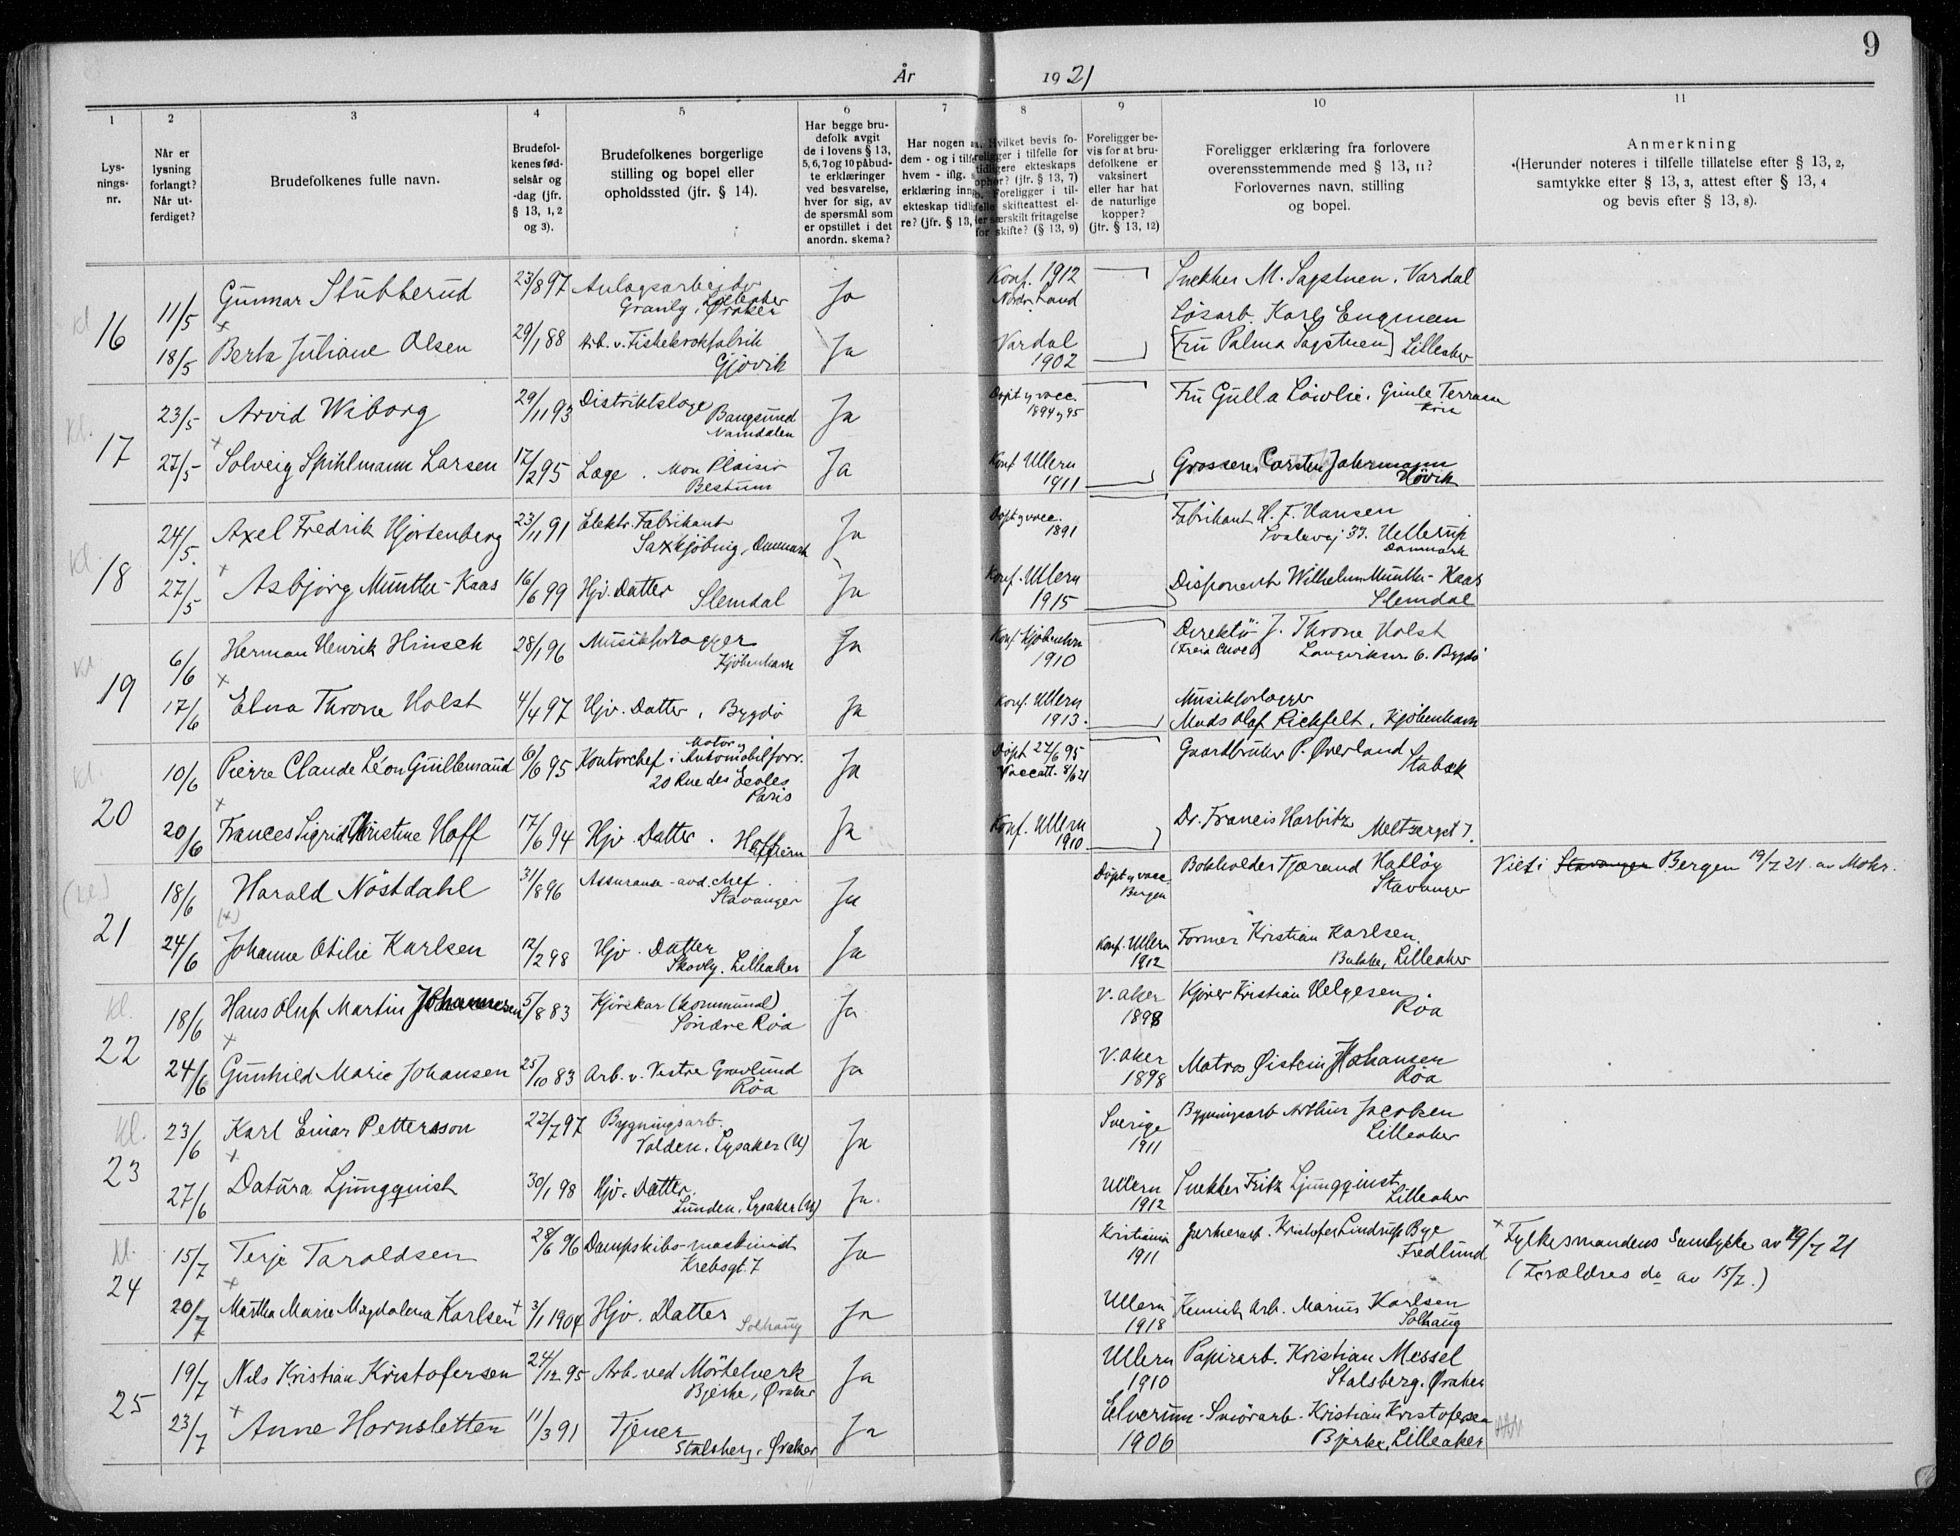 9
År 1921
1 2 3 4 5 6 7 8 9 10 11
Lysningsnr.
Når er lysning forlangt? Når utferdiget?
Brudefolkenes fulle navn.
Brudefolkenes fødselsår og -dag (jfr. § 13, 1, 2 og 3).
Brudefolkenes borgerlige stilling og bopel eller opholdssted (jfr. § 14).
Har begge brudefolk avgit de i lovens § 13, 5, 6, 7 og 10 påbudte erklæringer ved besvarelse, hver for sig, av de spørsmål som er opstillet i det anordn. skema?
Har nogen a dem - og i tilf hvem - iflg. erklæring inng ekteskap tidli re? (jfr. § 13,
Hvilket bevis foreligger i tilfelle for tidligere ekteskaps ophør? (jfr. § 13, 7) Foreligger i tilfelle skifteattest eller særskilt fritagelse for skifte? (§ 13, 9)
Foreligger bevis for at brudefolkene er vaksinert eller har hat de naturlige kopper? (jfr. § 13, 12)
Foreligger erklæring fra forlovere overensstemmende med § 13, 11? Forlovernes navn, stilling og bopel.
Anmerkning (Herunder noteres i tilfelle tillatelse efter § 13, 2, samtykke efter § 13, 3, attest efter § 13, 4 og bevis efter § 13, 8).
kl.
16
11/5 Gunnar Stubberud 23/8 97 Anlægsarbeider Granly, Lilleaker Øraker Ja Konf. 1912 Nordr. Land Snekker M. Sagstuen, Vardal
18/5 × Berta Juliane Olsen 29/1 88 Arb. v. Fiskekrokfabrik Gjøvik Ja Vardal 1902 Løsarb. Karl Engman [Fru Palma Sagstuen] Lilleaker
kl.
17
23/5 Arvid Wiborg 29/11 93 Distriktslæge Bangsund Namdalen Ja Døpt og vacc. 1894 og 95 Fru Gulla Löwlie, Gimle Terrasse Kria
27/5 × Solveig Spihlmann Larsen 17/2 95 Læge. Mon Plaisir Bestum Ja Konf Ullern 1911 Grosserer Carsten Johrmann Høvik
kl.
18
24/5. Axel Fredrik Hjortenberg 23/11 91 Elektr. Fabrikant Saxkjøbing, Danmark Ja Døpt og vacc. 1891 Fabrikant H. F. Hansen Svalevej 37. Hellerup Danmark
27/5 × Asbjørg Munthe-Kaas 16/6 99 Hjv. Datter Slemdal Ja Konf. Ullern 1915 Disponent Wilhelm Munthe-Kaas Slemdal
kl.
19
6/6 Herman Henrik Hinsch 28/1 96 Musikforlægger Kjøbenhavn Ja Konf Kjøbenhvn 1910 Direktør J. Throne Holst (Freia Choc.) Langviksvn 6. Bygdø
17/6 × Elna Throne Holst 4/4 97 Hjv. Datter, Bygdø Ja Konf. Ullern 1913. Musikforlægger Mads Olaf Pichfelt, Kjøbenhavn
kl.
20
10/6 Pierre Claude Léon Guillemaud 6/6 95 Kontorchef i Motor og Automobilforr. 20 Rue des Ecoles Paris Ja Døpt 27/6 95 Vaccatt. 8/6 21 Gaardbruker P. Øverland Stabæk
20/6 × Frances Sigrid Christine Hoff 17/6 94 Hjv Datter. Hoffheim Ja Konf. Ullern 1910 Dr. Francis Harbitz Meltzersgt 7.
21
18/6 Harald Nöstdahl 31/8 96 Assuranse-avd. chef. Stavanger Ja Døpt og vacc. Bergen Bokholder Tjærand Halløy Stavanger Viet i Stavanger Bergen 19/7 21 av Mohr.
24/6 (×) Johanne Otilie Karlsen 12/2 98 Hjv. Datter Skovly. Lilleaker Ja Konf. Ullern 1912 Former Kristian Karlsen. Bakke, Lilleaker
kl.
22
18/6 Hans Oluf Martin Johannesen 5/8 83 Kjørekar (kommunal) Søndre Røa Ja. V. Aker 1898 Kjører Kristian Helgesen Røa
24/6 × Gunhild Marie Johansen 25/10 83 Arb. v. Vestre Gravlund Røa Ja V. Aker 1898 Matros Øistein Johansen Røa
kl.
23
23/6 Karl Einar Pettersson 22/7 97 Bygningsarb. Volden. Lysaker (U) Ja Sverige 1911 Bygningsarb Arthur Jacobsen Lilleaker
27/6 × Datura Ljungquist 30/1 98 Hjv. Datter Lunden. Lysaker (U) Ja. Ullern 1912 Snekker Fritz Ljungquist Lilleaker
kl.
24
15/7 Terje Taraldsen 28/6 96 Dampskibs-maskinist Krebsgt. 7 Ja Kristiania 1911 Kristofer Lindrup Bye Fredlund × Fylkesmandens Samtykke av 19/7 21 (Forældres do av 15/7.)
20/7 × Martha Marie Magdalena Karlsen + 3/1 1904 Hjv. Datter Solhaug Ja Ullern 1918 Kemisk Arb. Marius Karlsen Solhaug
25
19/7 Nils Kristian Kristofersen 24/12 95 Arb. ved Mørtelverk Bjerke, Øraker Ja Ullern 1910 Papirarb. Kristian Messel Stalsberg. Øraker
23/7 × Anne Hornsletten 11/3 91 Tjener Stalsberg, Øraker Ja Elverum 1906 Kristian Kristofersen Bjerke, Lilleaker